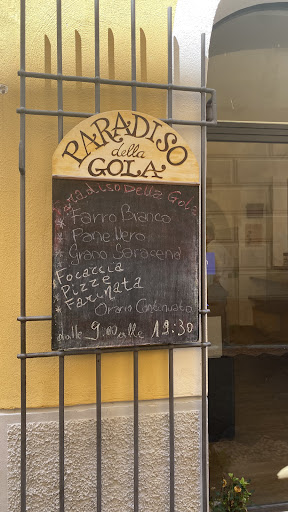 PARADISO
della
GOLA
Paradiso Della Gola
* Farro Bianco
* Pane Nero
* Grano Saraceno
Focaccia
* Pizze
* Farinata
Orario Continuato
dalle 9:00 alle 19:30